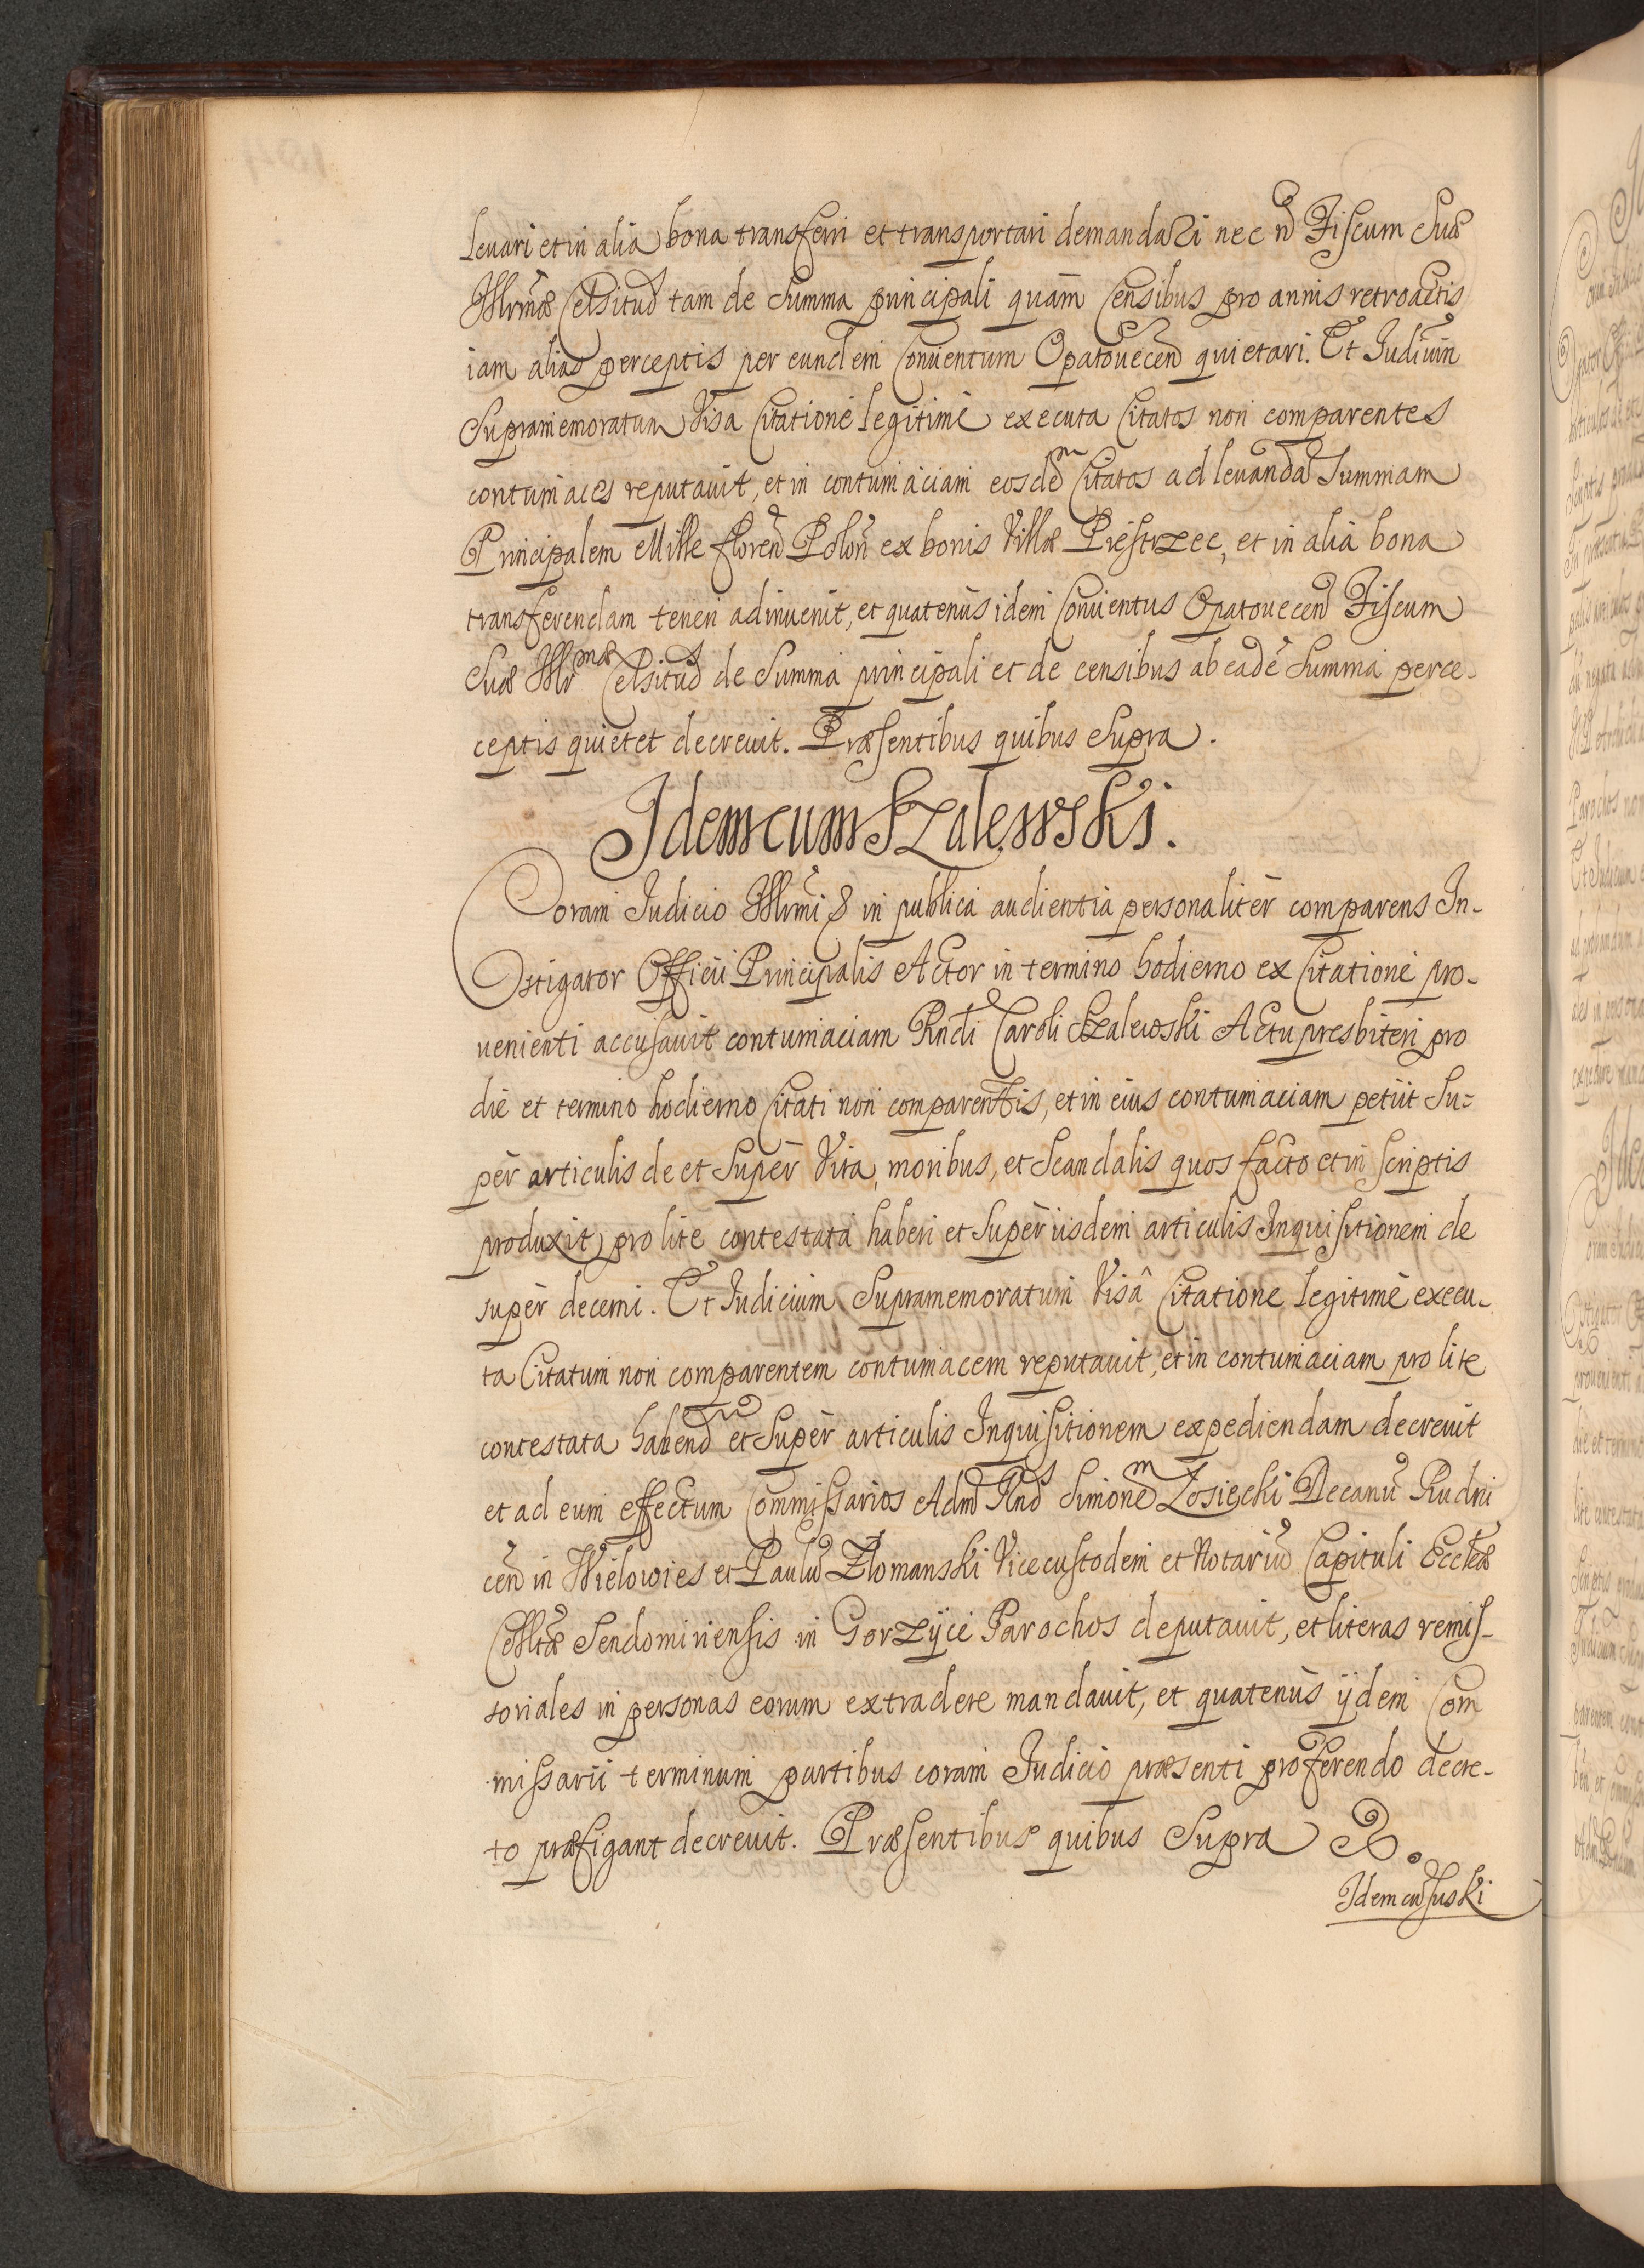 leuari et in alia bona transferri et transportari demandari nec nõ Fiscum Suæ
Illrmæ Celsitud tam de Summa principali quam Censibus pro annis retroactis
iam alias perceptis per eundem Conuentum Opatouecen quietari. Et Judiũm
Supramemoratum Visa Citatione legitimè executa Citatos non comparentes
contumaces reputauit, et in contumaciam eosdem Citatos ad leuandã Summam
Principalem Mille floren Polon ex bonis Villæ Piestrzec, et in alia bona
transferendam teneri adinuenit, et quatenùs idem Conuentus Opatouecen Fiscum
Suæ Illrmæ Celsitud de Summa principali et de censibus ab eadẽ Summa perce-
ceptis quietet decreuit. Præsentibus quibus Supra.
Idem cum Szalewski.
Coram Judicio Illrmi & in publica audientia personalitèr comparens In-
stigator Officii Principalis Actor in termino hodierno ex Citatione pro-
uenienti accusauit contumaciam Rndi Caroli Szalewski Actu presbiteri pro
die et termino hodierno Citati non comparentis, et in eius contumaciam petiit Su-
pèr articulis de et Supèr Vita, moribus, et Scandalis quos facto et in scriptis
produxit, pro lite contestata haberi et Supèr iisdem articulis Inquisitionem de
supèr decerni. Et Judicium Supramemoratum Visâ Citatione legitimè execu-
ta Citatum non comparentem contumacem reputauit, et in contumaciam pro lite
contestata habend et Supèr articulis Inquisitionem expediendam decreuit
et ad eum effectum Commissarios Adm Rnds Simonem Zosięcki Decanũ Rudni
cen in Wielowies et Paulũ Zlomanski Vicecustodem et Notariũ Capituli Ecclæ
Colltæ Sendomiriensis in Gorzyce Parochos deputauit, et literas remis-
soriales in personas eorum extradere mandauit, et quatenùs ijdem Com
missarii terminum partibus coram Judicio præsenti pro ferendo decre-
to præfigant decreuit. Præsentibus quibus Supra &.
Idem cũ Suski